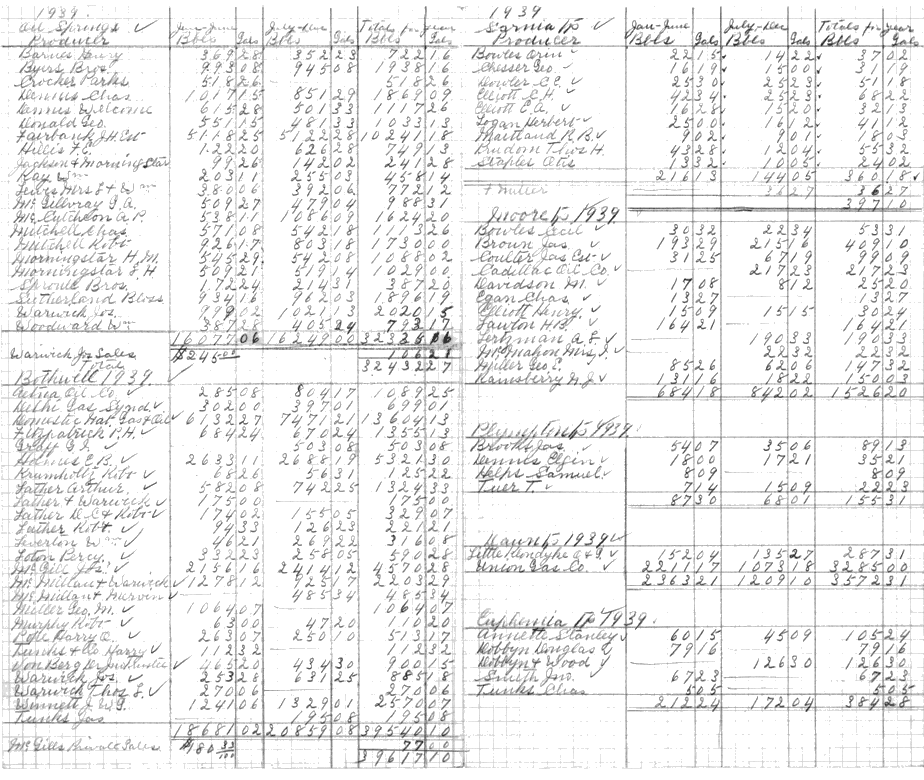 1939
Oil Springs ✓ Jan-June July-Dec Totals for year
Producer Bbls Gals Bbls Gals Bbls Gals
Barnes Henry 369 28 352 23 722 16
Byers Bros. 993 08 945 08 1938 16
Crocker Parks 518 26 518 26
Dennis Chas. 1017 15 851 29 1869 09
Dennis Welcome 615 28 501 33 1117 26
Donald Geo. 551 15 481 33 1033 13
Fairbank J H Est 5118 25 5122 28 10241 18
Hillis F. 122 20 626 28 749 13
Jackson & Morningstar 99 26 142 02 241 28
Kay Wm 203 11 255 03 458 14
Lewis Mrs L & Wm 380 06 392 06 772 12
McGillvray G.A. 509 27 479 04 988 31
McCutcheon A P. 538 11 1086 09 1624 20
Mitchell Chas 571 08 542 18 1113 26
Mitchell Robt 926 17 803 18 1730 00
Morningstar H.M. 545 29 542 08 1088 02
Morningstar F H 509 21 519 14 1029 00
Sproule Bros. 172 24 214 31 387 20
Sutherland Bloss 934 16 962 03 1896 19
Warwick Jos. 799 02 1021 13 2020 15
Woodward Wm 387 28 405 24 793 17
16077 06 16249 00 32325 06
Warwick Jos Sales $245 106 21
Total 32432 27
Bothwell 1939
Aetna Oil Co ✓ 285 08 804 17 1089 25
Delhi Gas Synd. ✓ 302 00 397 01 699 01
Domestic Nat. Gas & Oil 6132 27 7471 21 13604 13
Fitzpatrick P.H. ✓ 684 24 670 24 1355 13
Graff 503 08 503 08
Holmes E.B. ✓ 2633 11 2688 19 5321 30
Krumholtz Robt ✓ 68 26 56 31 125 22
Lather Arthur. ✓ 582 08 742 25 1324 33
Lather & Warwick ✓ 175 00 175 00
Lather D.C & Robt ✓ 174 02 155 05 329 07
Luther Robt. ✓ 94 33 126 23 221 21
Leverton Wm ✓ 46 21 269 22 316 08
Loton Percy. ✓ 332 23 258 05 590 28
McGill Jas. ✓ 2156 16 2414 12 4570 28
McMillan & Warwick ✓ 1278 12 925 17 2203 29
McMillan & Marvin ✓ 485 34 485 34
Miller Geo. M. ✓ 1064 07 1064 07
Murphy Robt ✓ 63 00 47 20 110 20
Pope Harry O. ✓ 263 07 250 10 513 17
Tunks & Co Harry ✓ 112 32 112 32
Von Berg Jr ✓ 465 20 434 30 900 15
Warwick Jos. ✓ 253 28 631 25 885 18
Warwick Thos L. ✓ 270 06 270 06
Winnett J W G. 1241 06 1329 01 2570 07
Tunks Jas 195 08 195 08
18681 02 20859 08 39540 10
McGills Private Sales $180 33/100 77 00
39617 10
1939
Sarnia Tp ✓ Jan-June July-Dec Totals for year
Producer Bbls Gals Bbls Gals Bbls Gals
Bowles Orin ✓ 22 15 ✓ 14 22 ✓ 37 02
Chesser Geo ✓ 16 19 ✓ 15 00 ✓ 31 19
Dowler C.C. ✓ 25 30 ✓ 25 23 ✓ 51 18
Elliott C.H. ✓ 42 34 ✓ 25 23 ✓ 68 22
Elliott E.A. ✓ 16 28 ✓ 15 20 ✓ 32 13
Logan Herbert ✓ 25 00 ✓ 16 12 ✓ 41 12
Maitland R B ✓ 9 02 ✓ 9 01 ✓ 18 03
Prudom Thos H. 43 28 ✓ 12 04 ✓ 55 32
Staples Otis 13 32 ✓ 10 05 ✓ 24 02
216 13 144 05 360 18 ✓
F Miller 36 27 36 27
397 10
Moore Tp 1939
Bowles Cecil ✓ 30 32 22 34 53 31
Brown Jas. ✓ 193 29 215 16 409 10
Coulter Jas Est ✓ 31 25 67 19 99 09
Cadillac Oil Co. ✓ 217 23 217 23
Davidson M. ✓ 17 08 8 12 25 20
Egan Chas. ✓ 13 27 13 27
Elliott Henry. ✓ 15 09 15 15 30 24
Lawton H B. ✓ 164 21 164 21
Lehman A F. ✓ 190 33 190 33
McMahon Mrs J. ✓ 22 32 22 32
Miller Geo E. ✓ 85 26 62 06 147 32
Ramsberry G J. ✓ 131 16 18 22 150 03
684 18 842 02 1526 20
Plympton Tp 1939
Brooks Jas. ✓ 54 07 35 06 89 13
Dennis Elgin ✓ 18 00 17 21 35 21
Helps Samuel. 8 09 8 09
Tuer T. ✓ 7 14 15 09 22 23
87 30 68 01 155 31
Dawn Tp 1939 ✓
Little Klondyke O & G ✓ 152 04 135 27 287 31
Union Gas Co. ✓ 2211 17 1073 18 3285 00
2363 21 1209 10 3572 31
Euphemia Tp 1939
Annette Stanley ✓ 60 15 45 09 105 24
Robbyn Douglas ✓ 79 16 79 16
Robbyn & Wood ✓ 126 30 126 30
Smith Jno. ✓ 67 23 67 23
Tunks Chas 5 05 5 05
212 24 172 04 384 28